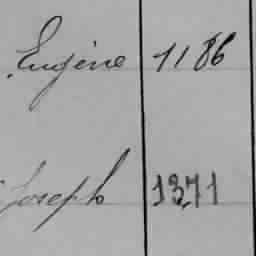 Eugène 1186
Joseph 1371